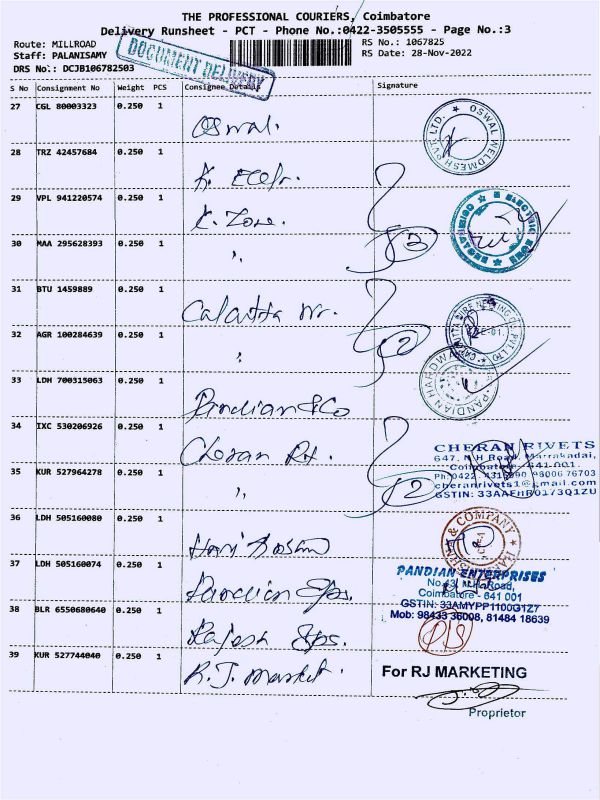 THE PROFESSIONAL COURIERS, Coimbatore
Delivery Runsheet - PCT - Phone No.:0422-3505555 - Page No.:3
Route: MILLROAD RS No.: 1067825
Staff: PALANISAMY RS Date: 28-Nov-2022
DRS No.: DCJB106782503
DOCUMENT DELIVERY
S No Consignment No Weight PCS Consignee Details Signature
27 CGL 80003323 0.250 1 Oswal.
OSWAL WELDMESH PVT. LTD.
28 TRZ 42457684 0.250 1 K.
29 VPL 941220574 0.250 1 K. Zone.
30 MAA 295628393 0.250 1 "
3
31 BTU 1459889 0.250 1 Calcutta Wr.
32 AGR 100284639 0.250 1 "
2
33 LDH 700315063 0.250 1 Pandian & Co
PANDIAN HARDWA
34 IXC 530206926 0.250 1 Cheran Rt.
CHERAN RIVETS
647, N.H.Road, Marrakadai,
Coimbatore - 641 001.
35 KUR 527964278 0.250 1 "
2
cheranrivets1@gmail.com
GSTIN: 33AAEHR0173Q1ZU
36 LDH 505160080 0.250 1 Hari
& COMPANY
37 LDH 505160074 0.250 1 Pandian Eps.
PANDIAN ENTERPRISES
No.43, N.H.Road,
Coimbatore - 641 001
GSTIN: 33AMYPP1100G1Z7
Mob: 98433 36008, 81484 18639
38 BLR 6550680640 0.250 1 Rajesh Eps.
39 KUR 527744040 0.250 1 R.J. Market.
For RJ MARKETING
Proprietor